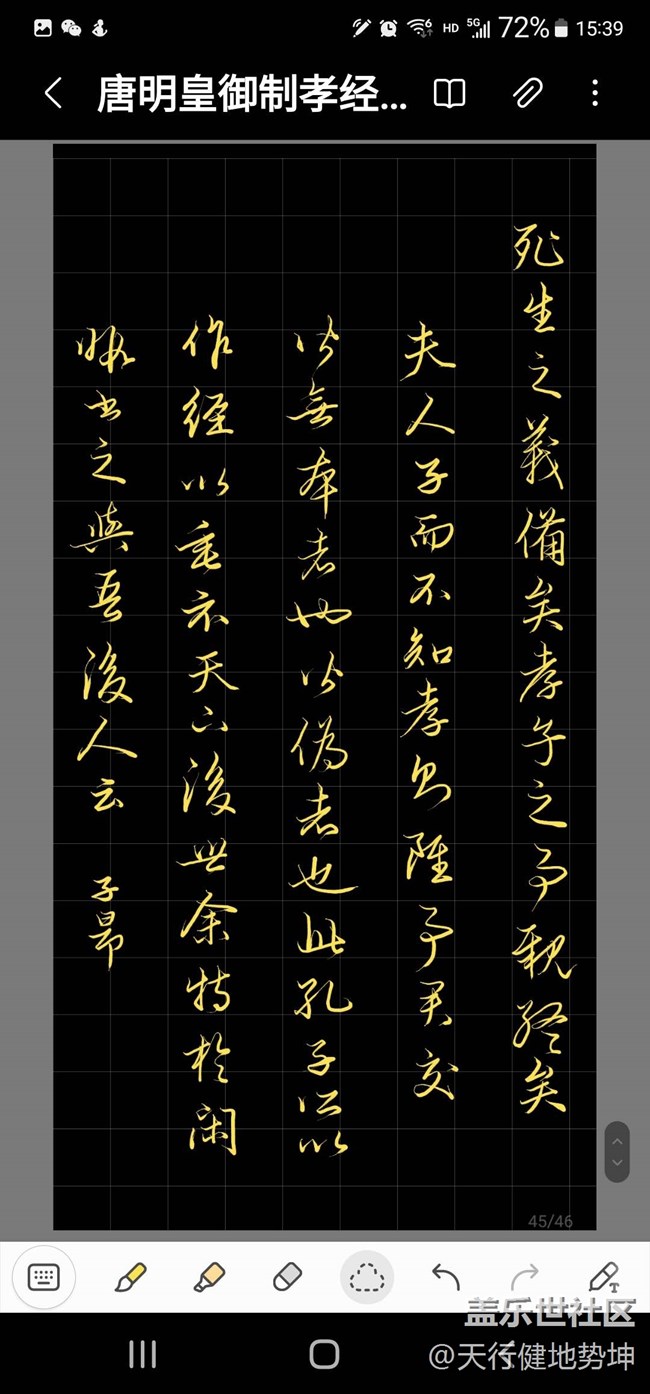 15:39
72%
5G
HD
唐明皇御制孝经...
死生之義備矣孝子之事親終矣
夫人子而不知孝則雖事君交
皆無本者也皆偽者也此孔子所以
作經以垂示天下後世余特於閑
暇書之與吾後人云 子昂
45/46
盖乐世社区
@天行健地势坤